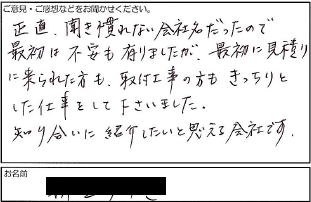 ご意見・ご感想などをお聞かせください。
正直、聞き慣れない会社名だったので
最初は不安も有りましたが、最初に見積り
に来られた方も、取付工事の方もきっちりと
した仕事をして下さいました。
知り合いに紹介したいと思える会社です。
お名前